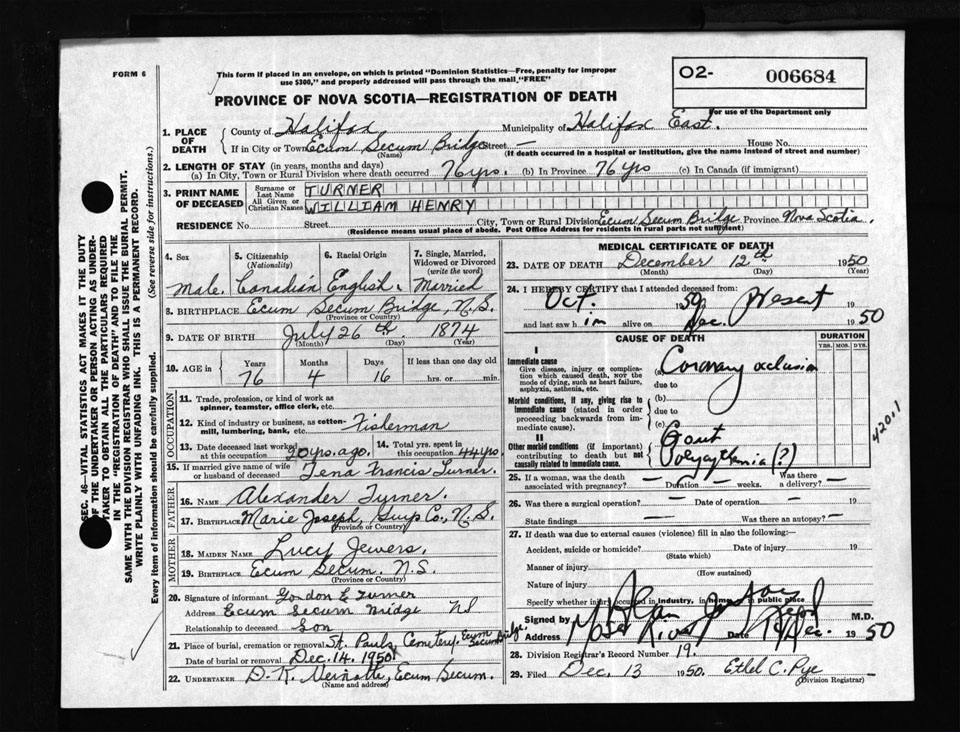 FORM 6
This form if placed in an envelope, on which is printed "Dominion Statistics—Free, penalty for improper
use $300," and properly addressed will pass through the mail, "FREE"
O2- 006684
PROVINCE OF NOVA SCOTIA—REGISTRATION OF DEATH
For use of the Department only
1. PLACE OF DEATH
County of Halifax Municipality of Halifax East.
If in City or Town Ecum Secum Bridge Street — House No.
(Name) (If death occurred in a hospital or institution, give the name instead of street and number)
2. LENGTH OF STAY (in years, months and days)
(a) In City, Town or Rural Division where death occurred 76 yrs. (b) In Province 76 yrs (c) In Canada (if immigrant)
3. PRINT NAME OF DECEASED
Surname or Last Name TURNER
All Given or Christian Names WILLIAM HENRY
RESIDENCE No. Street City, Town or Rural Division Ecum Secum Bridge Province Nova Scotia.
(Residence means usual place of abode. Post Office Address for residents in rural parts not sufficient)
4. Sex 5. Citizenship (Nationality) 6. Racial Origin 7. Single, Married, Widowed or Divorced (write the word)
Male. Canadian English. Married
8. BIRTHPLACE Ecum Secum Bridge, N.S.
(Province or Country)
9. DATE OF BIRTH July 26th 1874
(Month) (Day) (Year)
10. AGE in Years Months Days If less than one day old
76 4 16 hrs. or min.
OCCUPATION
11. Trade, profession, or kind of work as spinner, teamster, office clerk, etc.
12. Kind of industry or business, as cotton-mill, lumbering, bank, etc. Fisherman
13. Date deceased last worked at this occupation 20 yrs. ago. 14. Total yrs. spent in this occupation 44 yrs.
15. If married give name of wife or husband of deceased Tena Francis Turner.
FATHER
16. NAME Alexander Turner.
17. BIRTHPLACE Marie Joseph, Guys Co., N.S.
(Province or Country)
MOTHER
18. MAIDEN NAME Lucy Jewers.
19. BIRTHPLACE Ecum Secum. N.S.
(Province or Country)
20. Signature of informant Gordon E Turner
Address Ecum Secum Bridge NS
Relationship to deceased Son
21. Place of burial, cremation or removal St. Pauls Cemetery. Ecum Secum Bridge.
Date of burial or removal Dec. 14, 1950
22. UNDERTAKER D. K. Ecum Secum.
(Name and address)
MEDICAL CERTIFICATE OF DEATH
23. DATE OF DEATH December 12th 1950
(Month) (Day) (Year)
24. I HEREBY CERTIFY that I attended deceased from:
Oct. 1950 Present 19
and last saw h im alive on Dec. 1950
CAUSE OF DEATH DURATION
YRS. MOS. DYS.
I
Immediate cause
Give disease, injury or complication which caused death, NOT the mode of dying, such as heart failure, asphyxia, asthenia, etc.
(a) Coronary occlusion
due to
Morbid conditions, if any, giving rise to immediate cause (stated in order proceeding backwards from immediate cause).
(b)
due to
(c)
II
Other morbid conditions (if important) contributing to death but not causally related to immediate cause.
Gout
Polycythemia (?)
420.1
25. If a woman, was the death associated with pregnancy? — Duration — weeks. Was there a delivery? —
26. Was there a surgical operation? — Date of operation — 19
State findings — Was there an autopsy? —
27. If death was due to external causes (violence) fill in also the following:
Accident, suicide or homicide? Date of injury 19
(State which)
Manner of injury
(How sustained)
Nature of injury
Specify whether injury occurred in industry, in home, or in public place
Signed by M.D.
Address Moser River Date 19 Dec. 1950
28. Division Registrar's Record Number 19.
29. Filed Dec. 13 1950. Ethel C. Pye
(Division Registrar)
SEC. 46—VITAL STATISTICS ACT MAKES IT THE DUTY
OF THE UNDERTAKER OR PERSON ACTING AS UNDER-
TAKER TO OBTAIN ALL THE PARTICULARS REQUIRED
IN THE "REGISTRATION OF DEATH" AND TO FILE THE
SAME WITH THE DIVISION REGISTRAR WHO SHALL ISSUE THE BURIAL PERMIT.
WRITE PLAINLY WITH UNFADING INK. THIS IS A PERMANENT RECORD.
Every item of information should be carefully supplied. (See reverse side for instructions.)